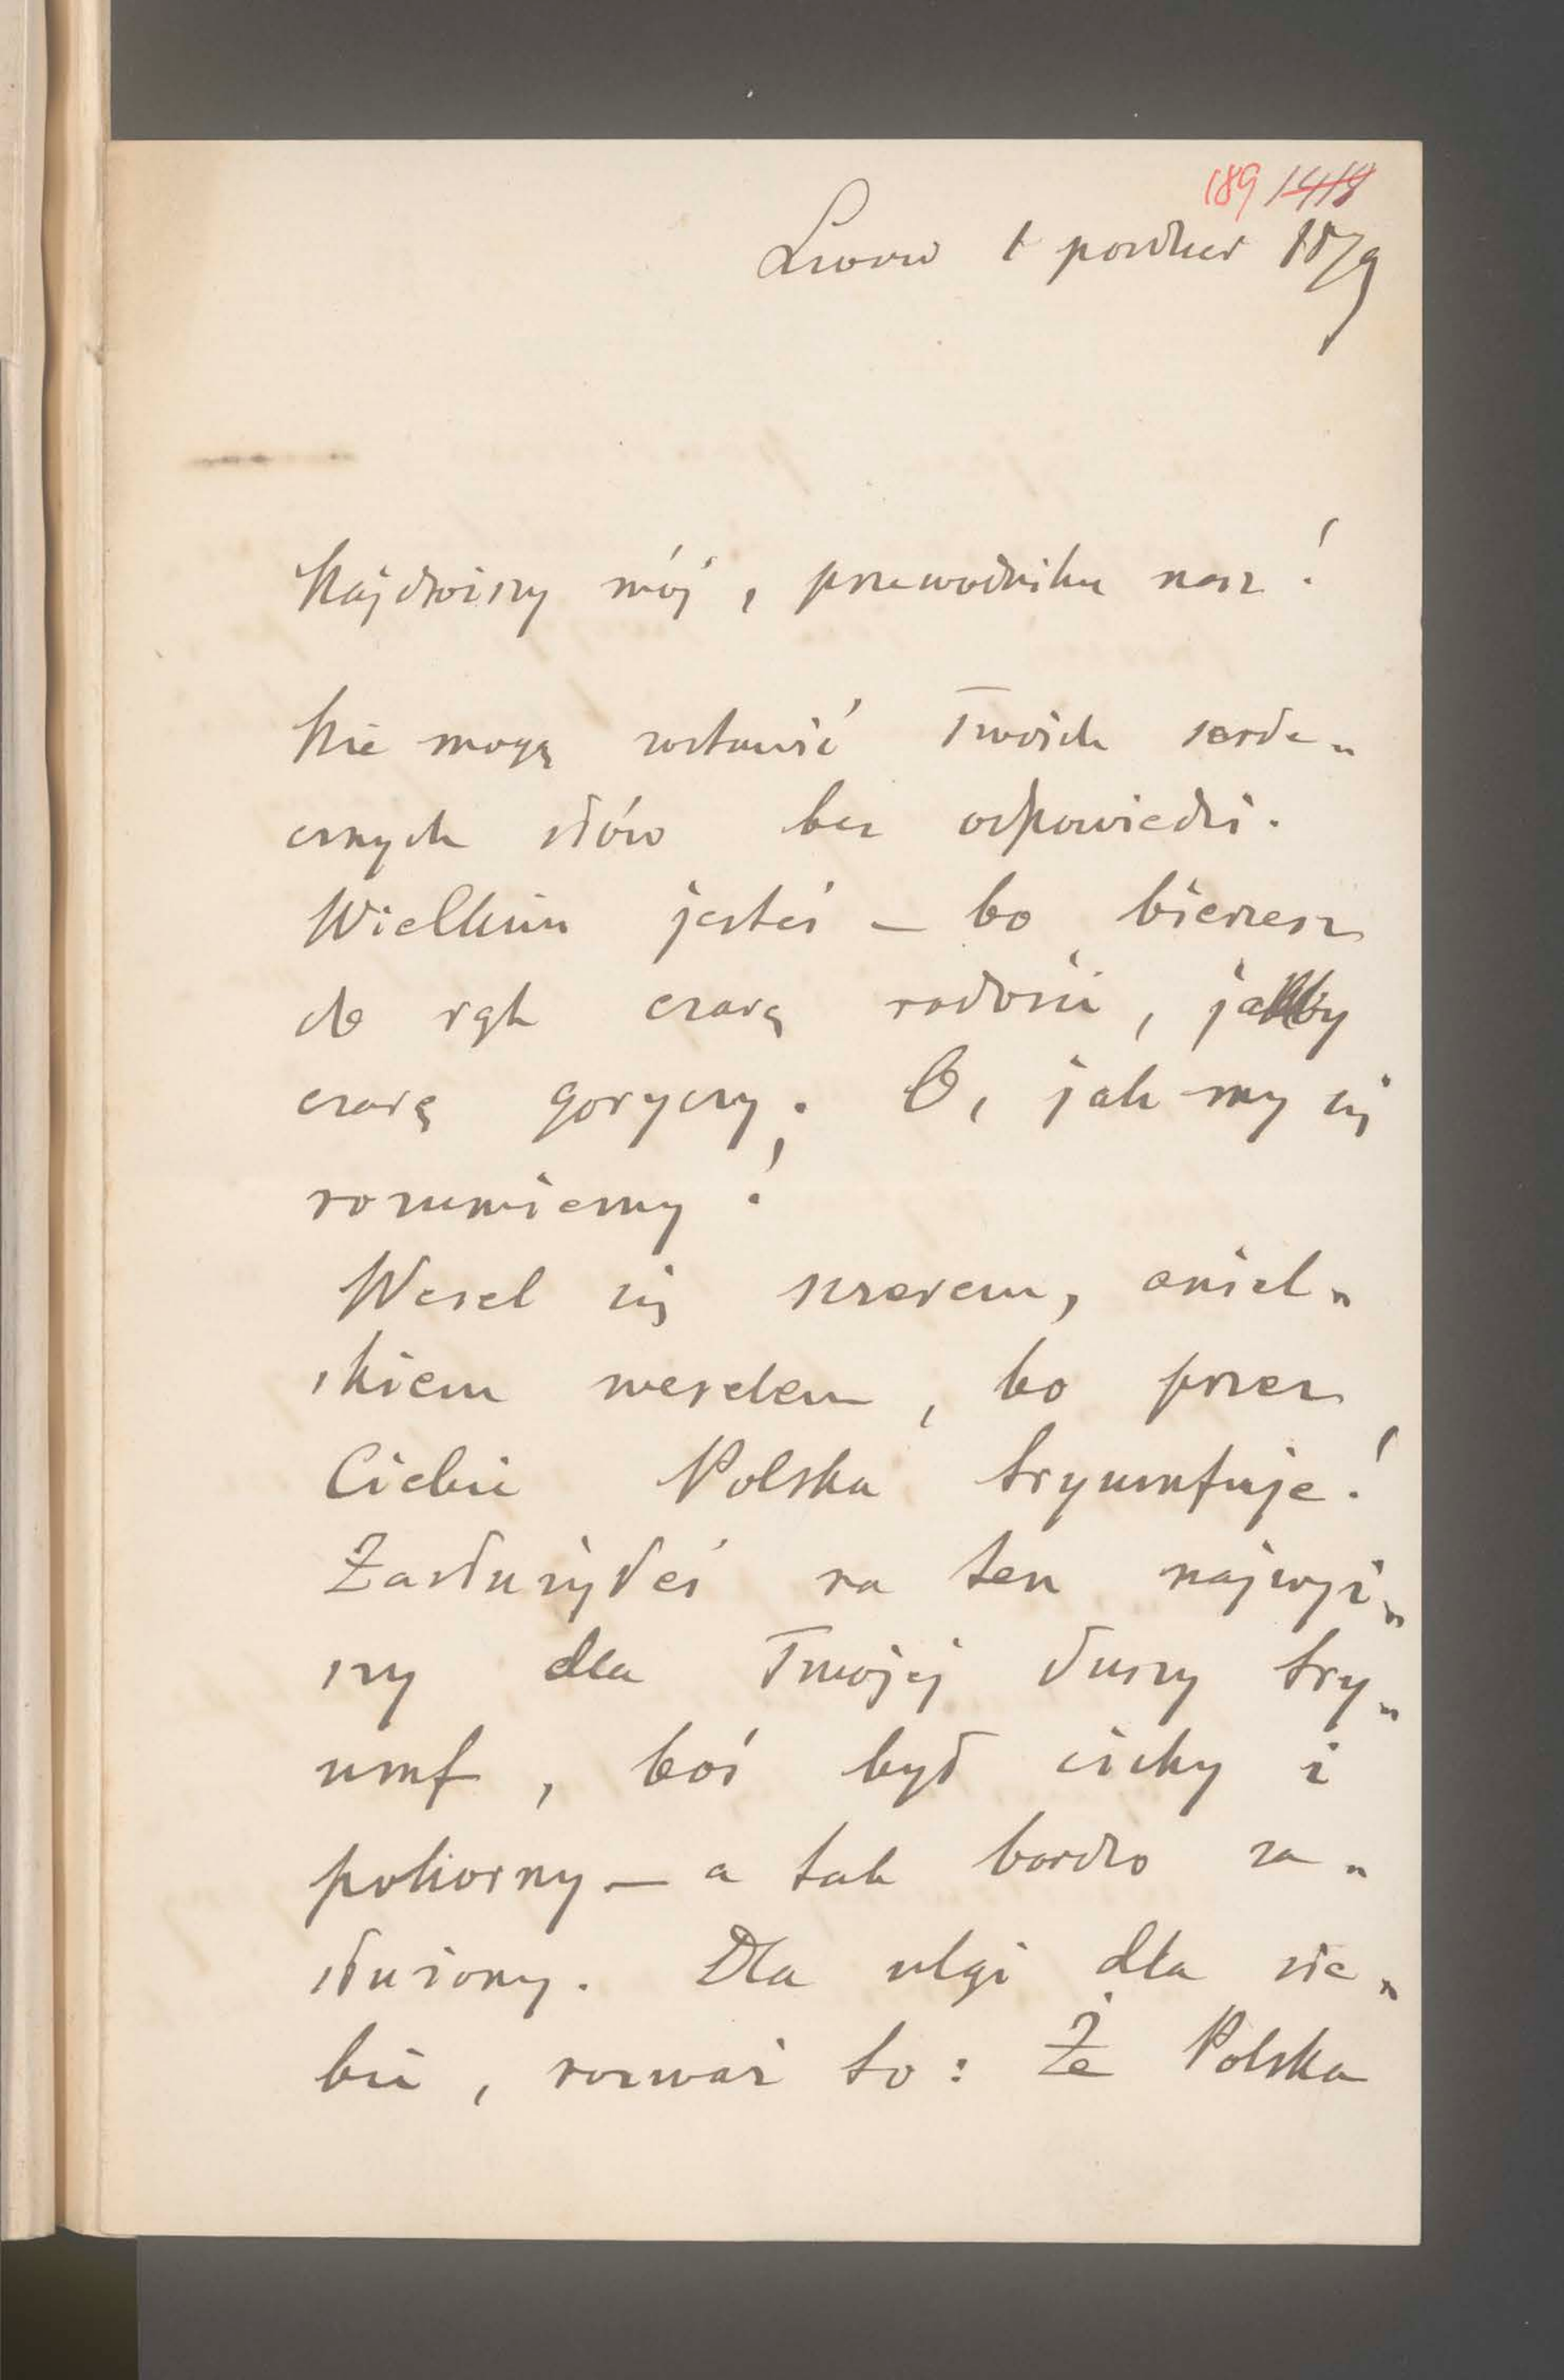 189 1418
Lwow 1 paździer 1879
Najdroższy mój, przewodniku nasz!
Nie mogę zostawić Twoich serde„
cznych słów bez odpowiedzi.
Wielkim jesteś — bo bierzesz
do rąk czarę radości, jakby
czarę goryczy. O, jak my się
rozumiemy!
Wesel się szczerem, aniel„
skiem weselem, bo przez
Ciebie Polska tryumfuje!
Zasłużyłeś na ten najwyż„
szy dla Twojej duszy try„
umf, boś był cichy i
pokorny — a tak bardzo za„
służony. Dla ulgi dla sie„
bie, rozważ to: Że Polska